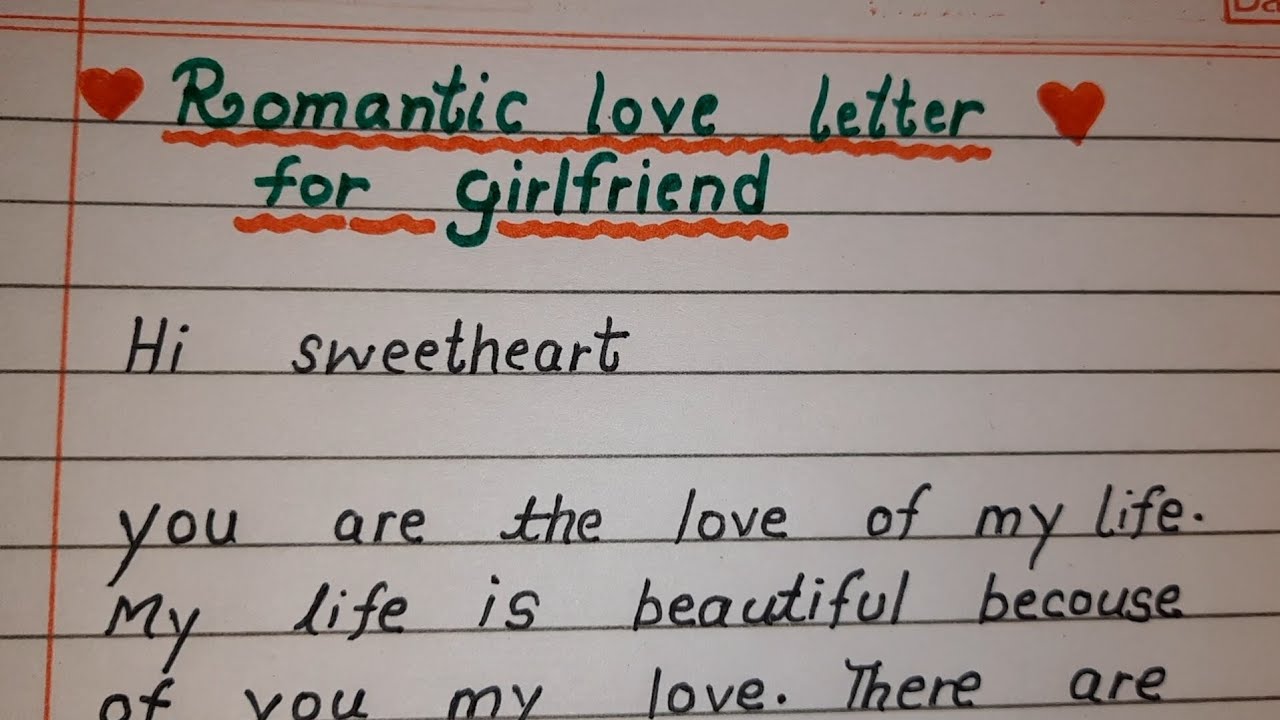 Romantic love letter
for girlfriend
Hi sweetheart
you are the love of my life.
My life is beautiful becouse
of you my love. There are